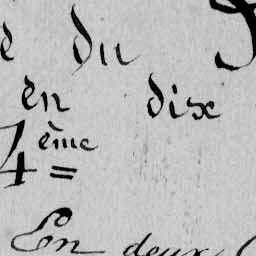 du
en dix
4ème =
En deux